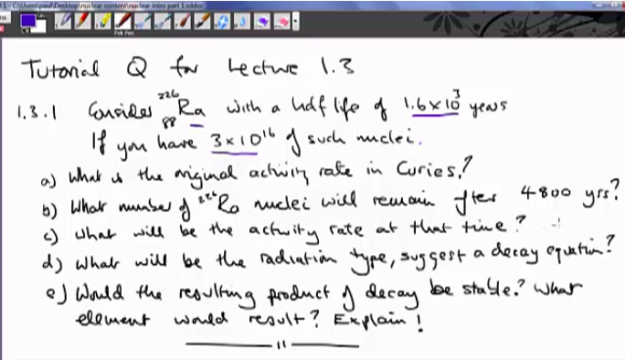 C:\Users\paul\Desktop\nuclear content\nuclear intro part 1.sbdoc
Felt Pen
Tutorial Q for Lecture 1.3
1.3.1 Consider ²²⁶₈₈Ra with a half life of 1.6×10³ years
If you have 3×10¹⁶ of such nuclei.
a) What is the original activity rate in Curies?
b) What number of ²²⁶Ra nuclei will remain after 4800 yrs?
c) what will be the activity rate at that time?
d) What will be the radiation type, suggest a decay equation?
e) Would the resulting product of decay be stable? What
element would result? Explain!